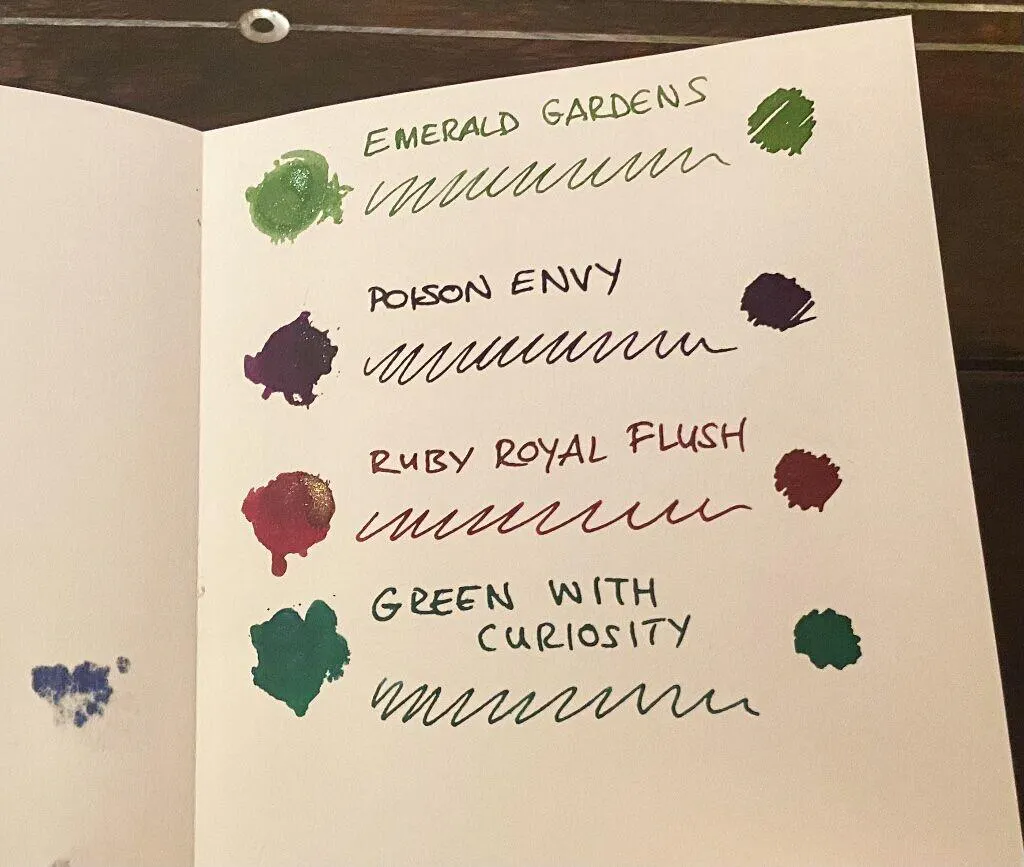 EMERALD GARDENS
POISON ENVY
RUBY ROYAL FLUSH
GREEN WITH
CURIOSITY